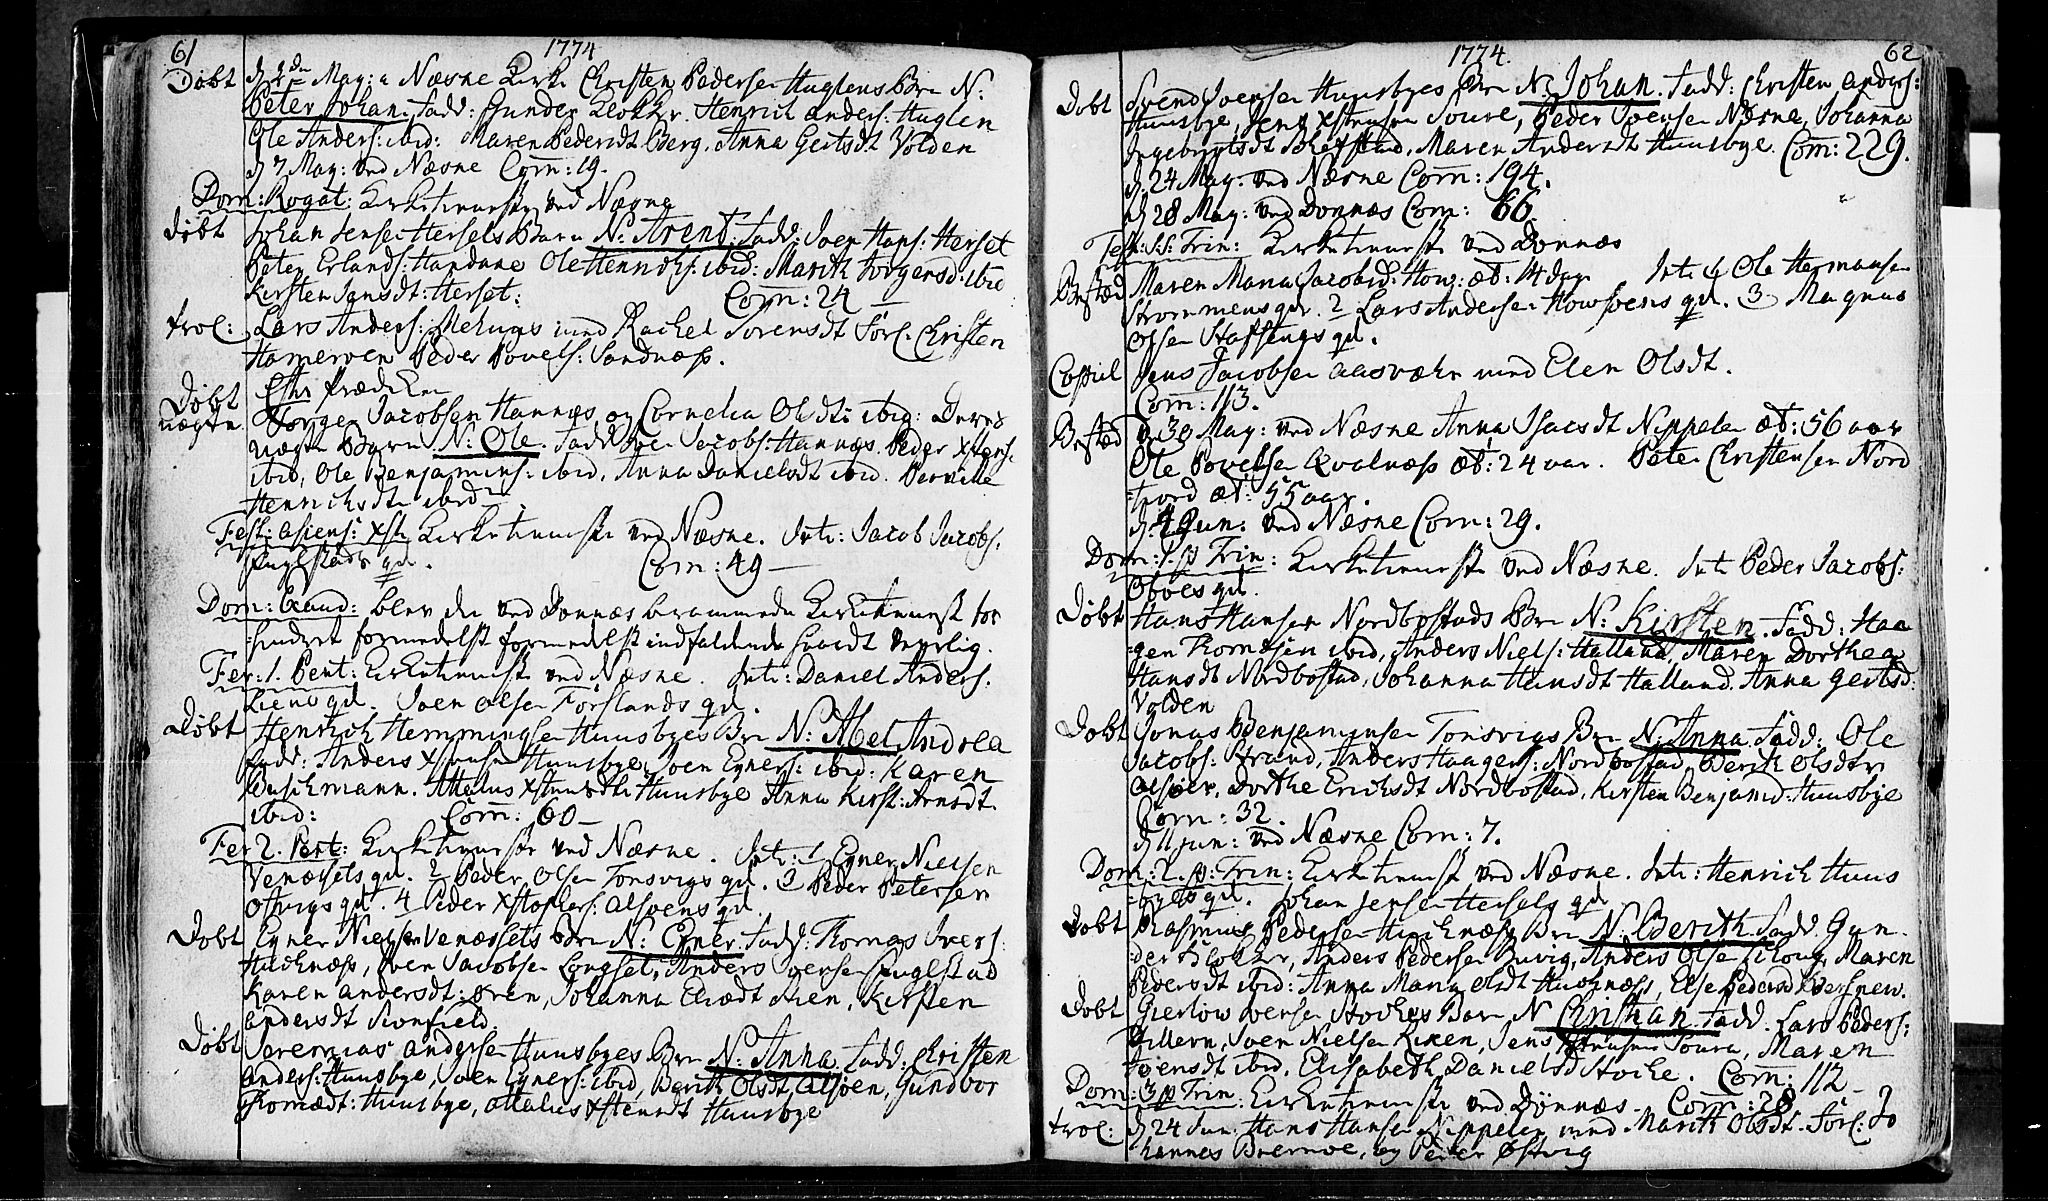 61
1774
Døbt d. 1 den May: a Næsne Kirke Christen Pedersen Huglens Barn N:
Peter Johan. Fadd: Gunder Klokker. Henrich Anders: Huglen
Ole Anders: ibid: Maren Pedersdt Berg, Anna Gertsdt Volden
d 7 May: ved Næsne Com: 19.
Dom: Rogat: Kirketienniste ved Næsne
døbt Johan Jensen Hersets Barn N: Arent. Fadd: Joen Hans: Herset
Peter Erlands: Handnæ Ole Henrichs: ibid: Marith Jorgensd: ibid
Kirsten Jensdt: Herset: Com: 24 —
trol: Lars Anders: Mehuges med Rachel Sørensdt Førl: Christen
Hamernen Peder Povels: Sandnæss.
Efter Prædiken
Døbt uægte Jørgen Jacobsen Hannæs og Cornelia Olsdt: ibid: Deres
uægte Barn N: Ole. Fadd: Joen Jacobs: Hannæs. Peder Xstens:
ibid, Ole Benjamins: ibid, Anna Danielsdt ibid. Pernille
Henrichsdt ibid
Fest: Asiens: Xsti Kirketienniste ved Næsne. Intr: Jacob Jacobs.
Fuglstads qd. Com: 49 —
Dom: Exaud: blev den ved Dønnæs berammede Kirketienniste for
hindret formedelst formedelst indfaldende haardt Veyrlig.
Fer: 1. Pent: Kirketienniste ved Næsne. Intr: Daniel Anders:
Liens qd. Joen Olsen Forslands qd.
Døbt Henrich Hemmingsen Huusbyes Barn N: Abel Andrea
Fadd: Anders Xstensen Huusbye, Joen Egners: ibid: Karen
Buschmann. Attelus Xstensdtr Huusbye Anna Kirst: Arnsdt
ibid: Com: 60 —
Fer 2. Pent: Kirketienniste ved Næsne. Intr: 1 Egner Nielsen
Venæssets qd. 2 Peder Olsen Tonsvigs qd. 3 Peder Petersen
Ostvigs qd. 4 Peder Xstophers: Alsøens qd.
Døbt Egner Nielsen Venæssets Barn N: Egner. Fadd: Thomas Ivers:
Huchnæss, Joen Jacobsen Longset, Anders Joensen Fuglstad
Karen Andersdt: Øren, Johanna Eliædt Øien, Kirsten
Andersdt
Døbt Jeremias Andersen Huusbyes Barn N: Anna. Fadd: Christen
Anders: Huusbye, Joen Egners: ibid, Berith Olsdt Alsøen, Gundvor
Thomædt: Huusbye, Attelus Xstensdt Huusbye
62
1774.
Døbt Svend Joensen Huusbyes Barn N: Johan. Fadd: Christen Anders:
Huusbye, Jens Xstensen Soure, Peder Joensen Næsne, Johanna
Ingebrigtsdt, Maren Andersdt Huusbye. Com: 229.
d. 24 May. ved Næsne Com: 194.
d 28 May: ved Dønnæs Com: 66.
Fest: S.S. Trin: Kirketienniste ved Dønnæs
Bested Maren Maria Jacobsd: How: æt: 14 dage Intr: 1 Ole Hermansen
Strømmens qd. 2 Lars Andersen Howsvens qd. 3 Magnus
Olsen Stafsengs qd.
Copul Jens Jacobsen Aasværn med Elen Olsdt.
Com: 113.
Bested d 30 May: ved Næsne Anna Isacsdt Nippelen æt: 56 aar
Ole Povelsen Qvalnæss æt: 24 aar. Peter Christensen Nord
fiord æt: 55 aar.
d. 4 Jun: ved Næsne Com: 29.
Dom: 1. p Trin: Kirketienniste ved Næsne. Intr Peder Jacobs:
qd.
Døbt Hans Hansen Nordbostads Barn N: Kirsten. Fadd: Haa
gen Thomæsen ibid, Anders Niels: Halland, Maren Dorthea
Hansdt Nordbostad, Johanna Hansdt Halland. Anna Gertsd:
Volden
Døbt Jonas Benjaminsen Tonsvigs Barn N: Anna. Fadd: Ole
Jacobs: Strand, Anders Haagens: Nordbostad, Berith Olsdtr
Alsøen, Dorthe Erichsdt Nordbostad, Kirsten Benjamid: Huusbye
Com: 32.
d 11 Jun: ved Næsne Com: 7.
Dom: 2. p: Trin: Kirketienniste ved Næsne. Intr: Henrich Huus
byes qd. Johan Jensen Hersets qd
Døbt Rasmus Pedersen Huchnæss Barn N: Berith. Fadd: Gun
der Klokker, Anders Pedersen Buvig, Anders Olsen Liloug, Maren
Pedersdt ibid: Anna Maria Olsdt Huchnæss, Else Pedersd
Døbt Giertow Joensen Stoches Barn N Christian. Fadd. Lars Peders:
Tillern, Joen Nielsen Rixen, Jens Xstensen Soura, Maren
Joensdt ibid, Elisabeth Danielsd Stoche. Com: 112 —
Dom: 3 p Trin: Kirketienniste ved Dønnæs — Com: 28
trol: d 24 Jun: Hans Hansen Nippelen med Marith Olsdt. Førl: Jo
hannes Breenoe, og Peder Østvig